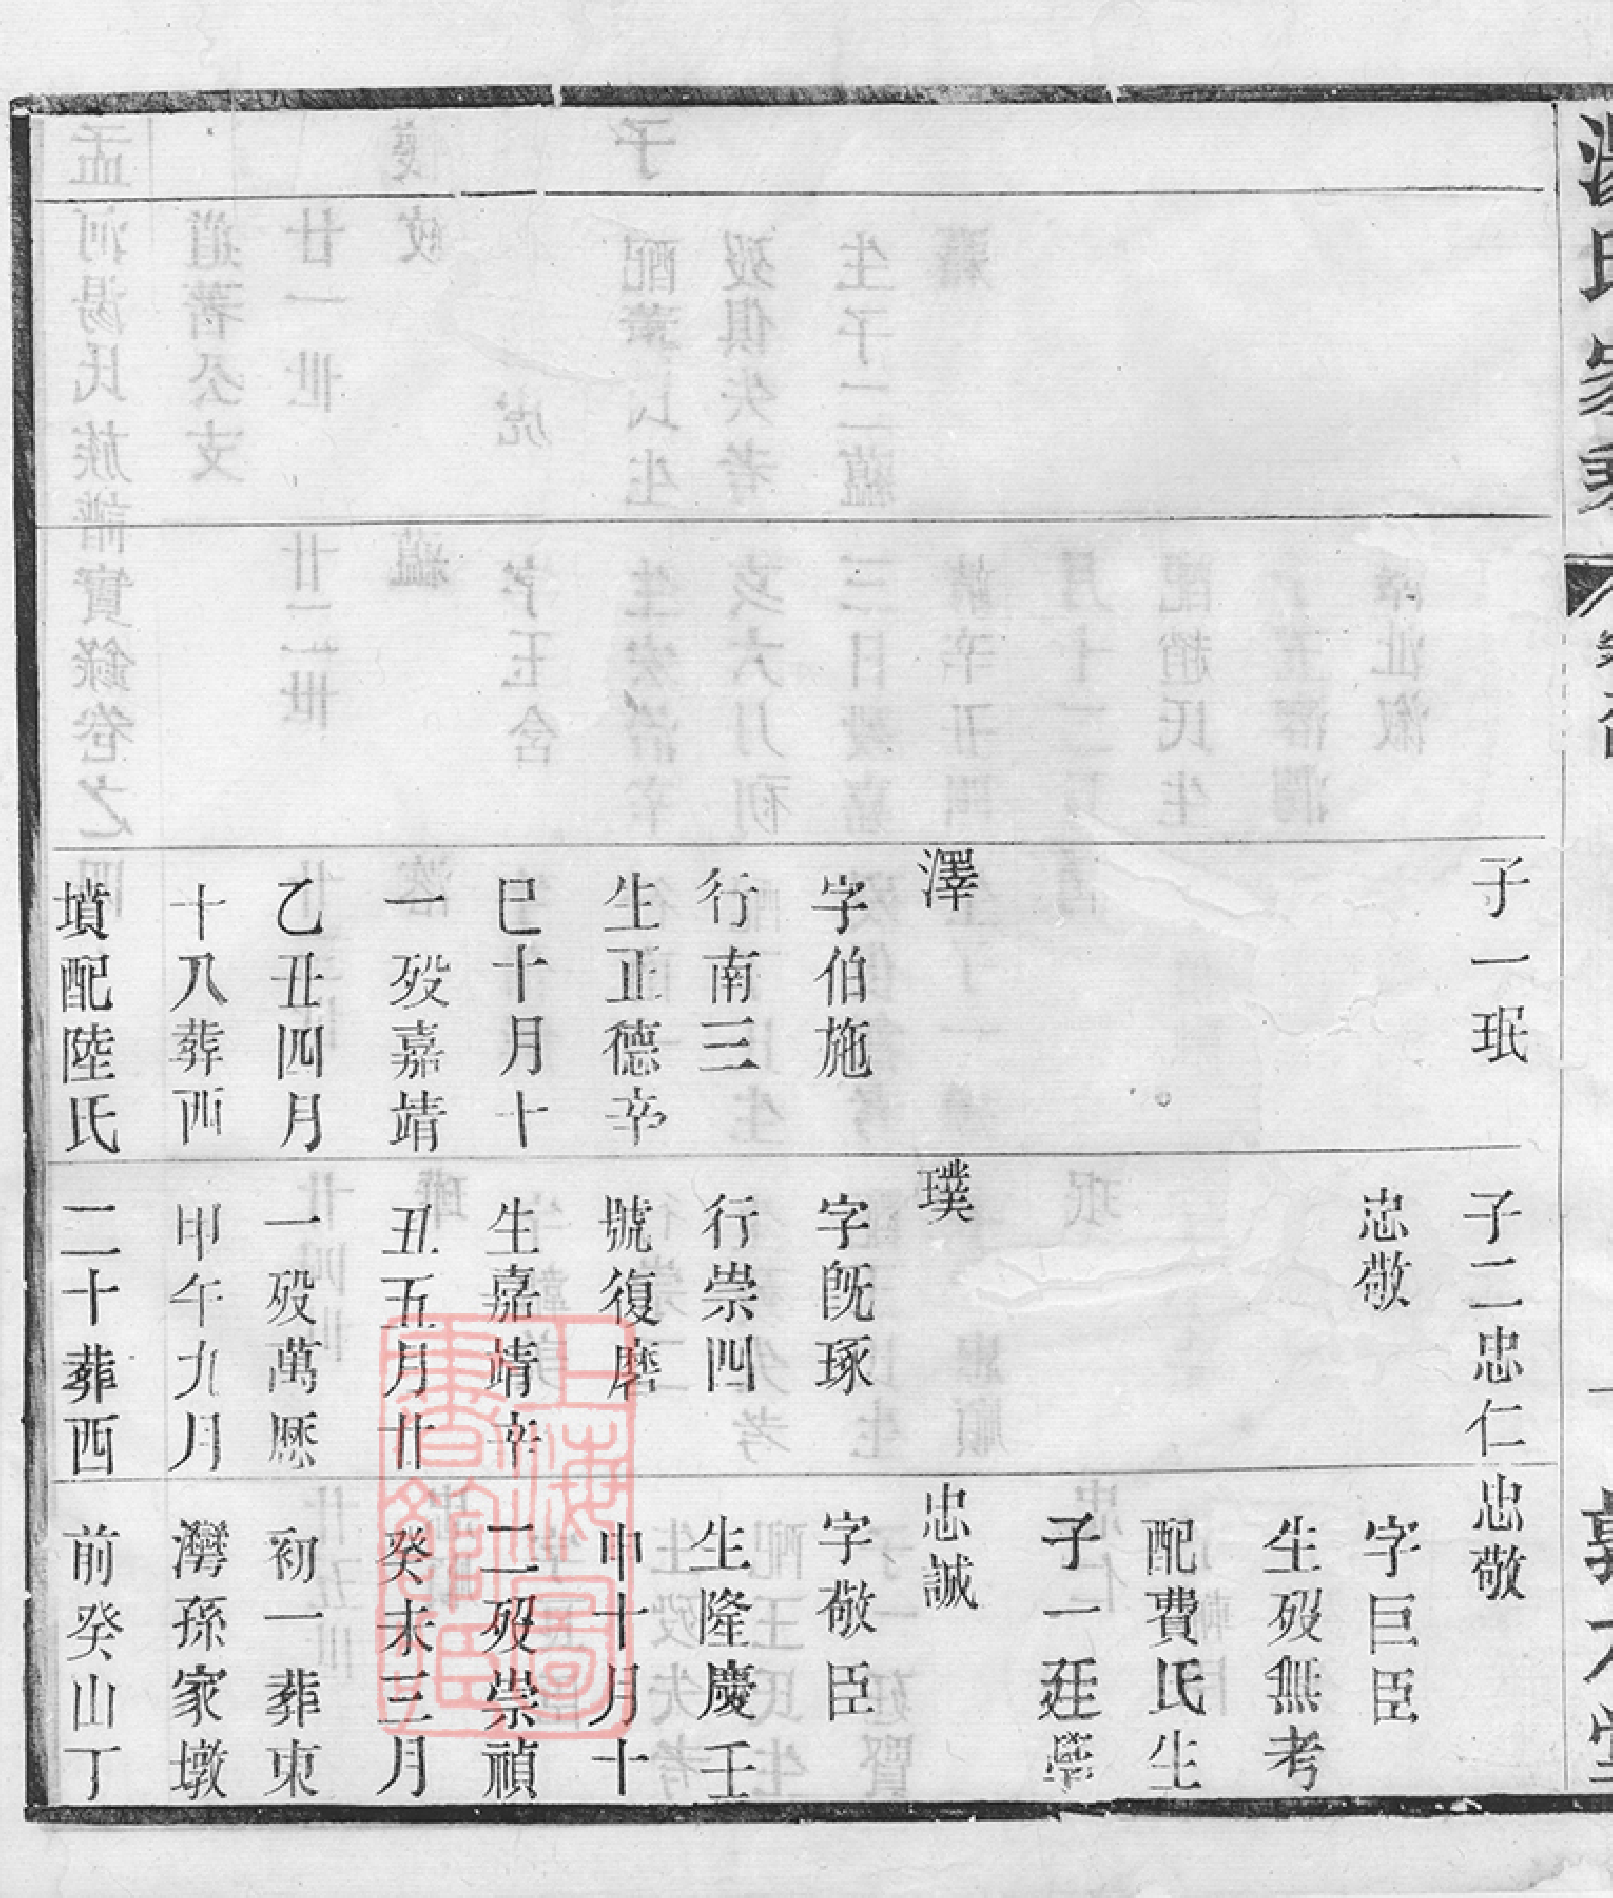 湯氏家乘
子一珉
澤
字伯施
行南三
生正德辛
巳十月十
一歿嘉靖
乙丑四月
十八葬西
墳配陸氏
子二忠仁
忠敬
璞
字旣琢
行崇四
號復磨
生嘉靖辛
丑五月廿
一歿萬厯
甲午九月
二十葬西
忠敬
字巨臣
生歿無考
配費氏生
子一廷榮
忠誠
字敬臣
生隆慶壬
申十月十
二歿崇禎
癸未三月
初一葬東
灣孫家墩
前癸山丁
上海圖
書館藏